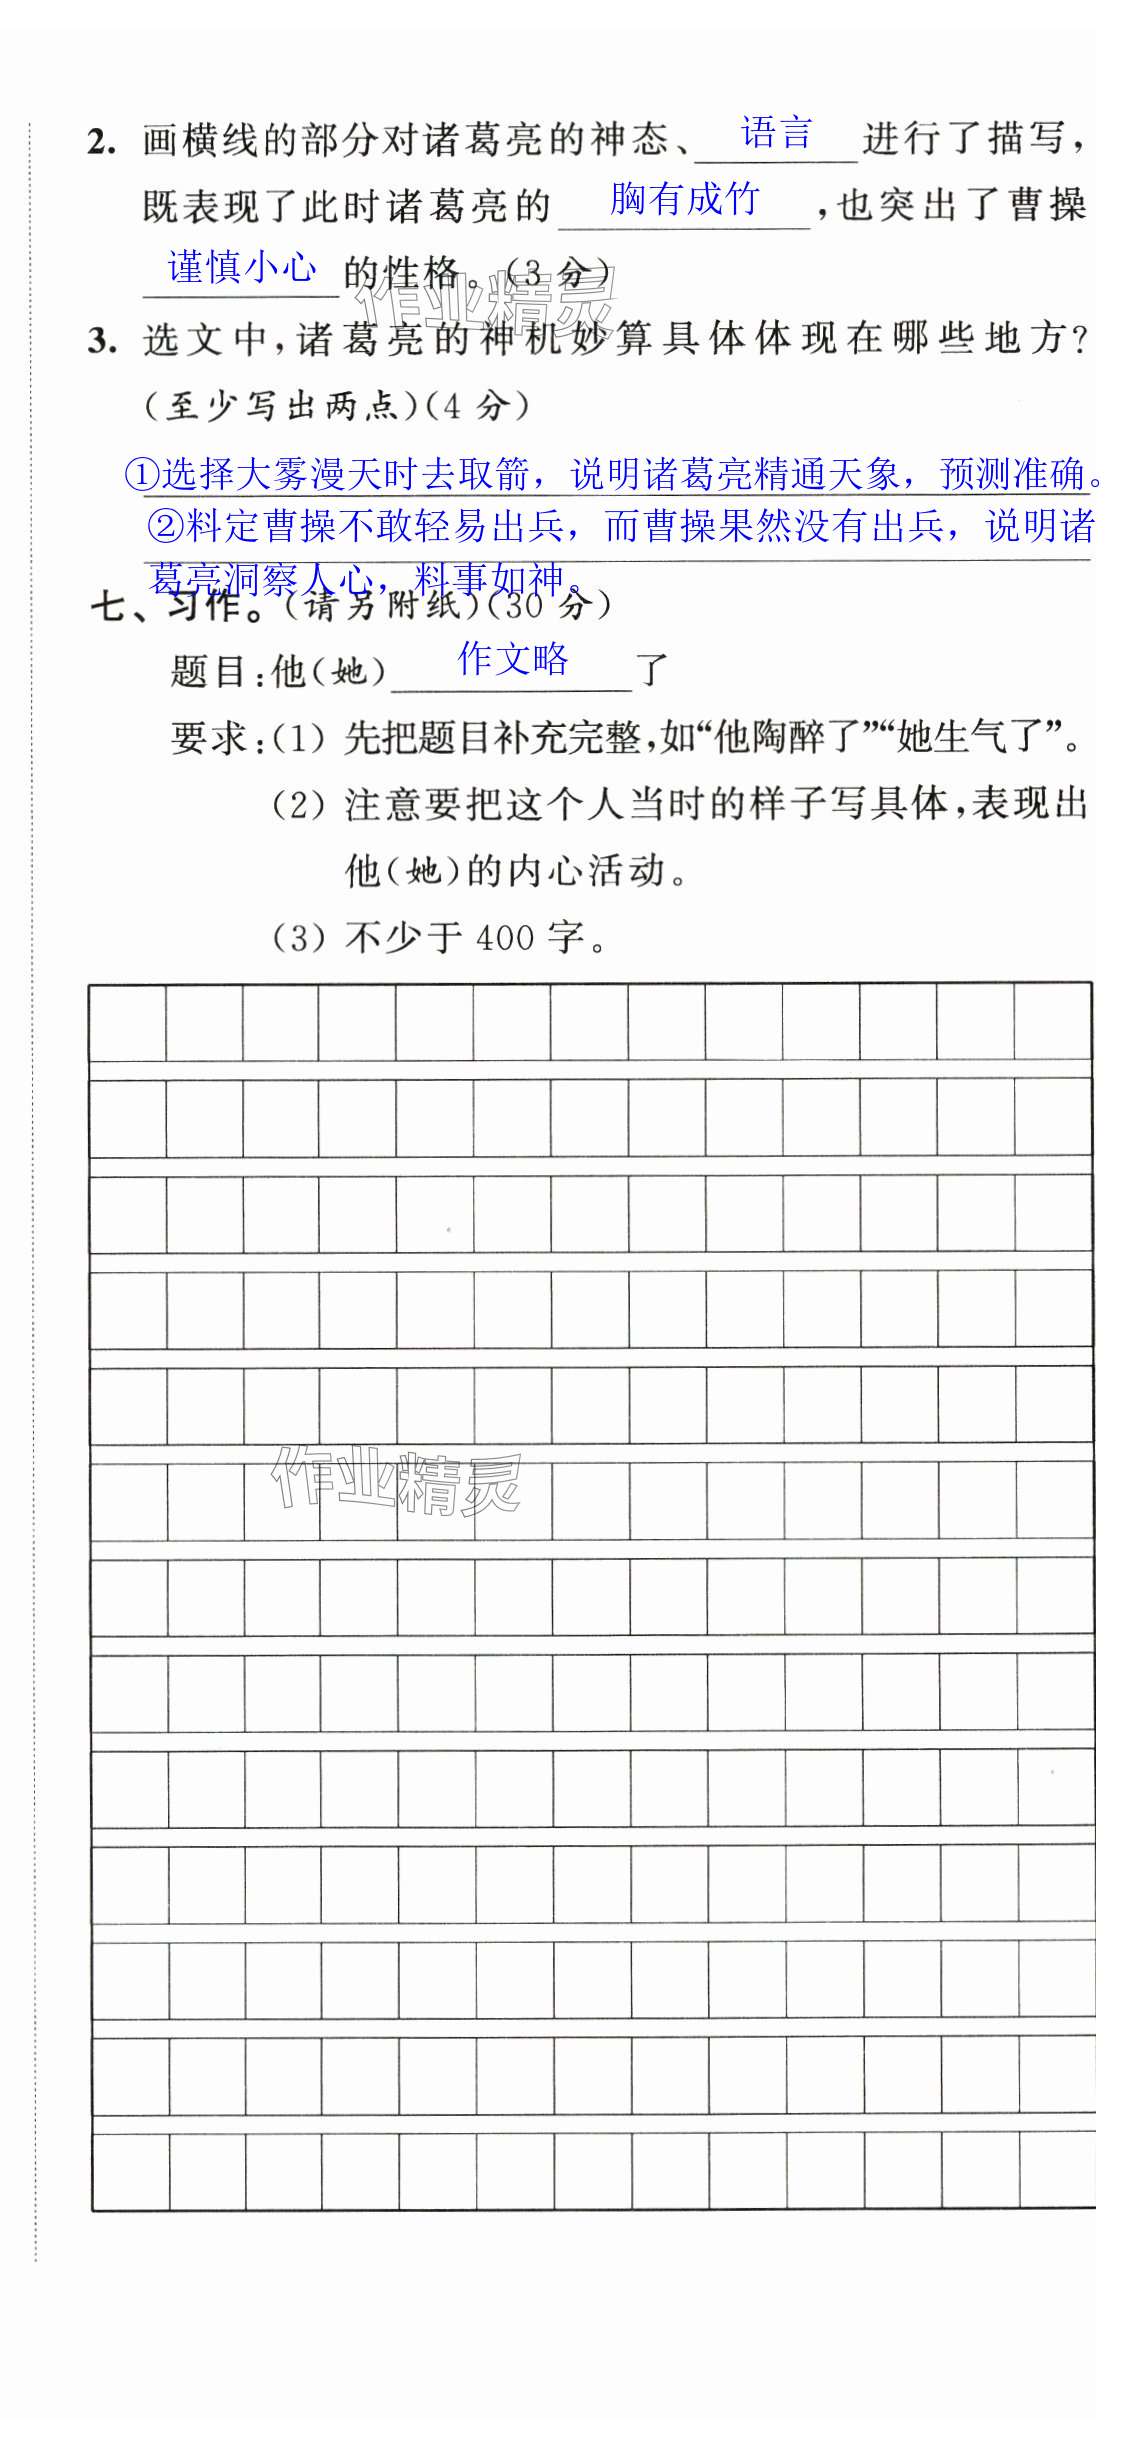 2. 画横线的部分对诸葛亮的神态、语言进行了描写，
既表现了此时诸葛亮的胸有成竹，也突出了曹操
谨慎小心的性格。(3 分)
作业精灵
3. 选文中，诸葛亮的神机妙算具体体现在哪些地方？
(至少写出两点)(4 分)
①选择大雾漫天时去取箭，说明诸葛亮精通天象，预测准确。
②料定曹操不敢轻易出兵，而曹操果然没有出兵，说明诸
葛亮洞察人心，料事如神。
七、习作。(请另附纸)(30 分)
题目：他(她)作文略了
要求：(1) 先把题目补充完整，如“他陶醉了”“她生气了”。
(2) 注意要把这个人当时的样子写具体，表现出
他(她)的内心活动。
(3) 不少于 400 字。
作业精灵